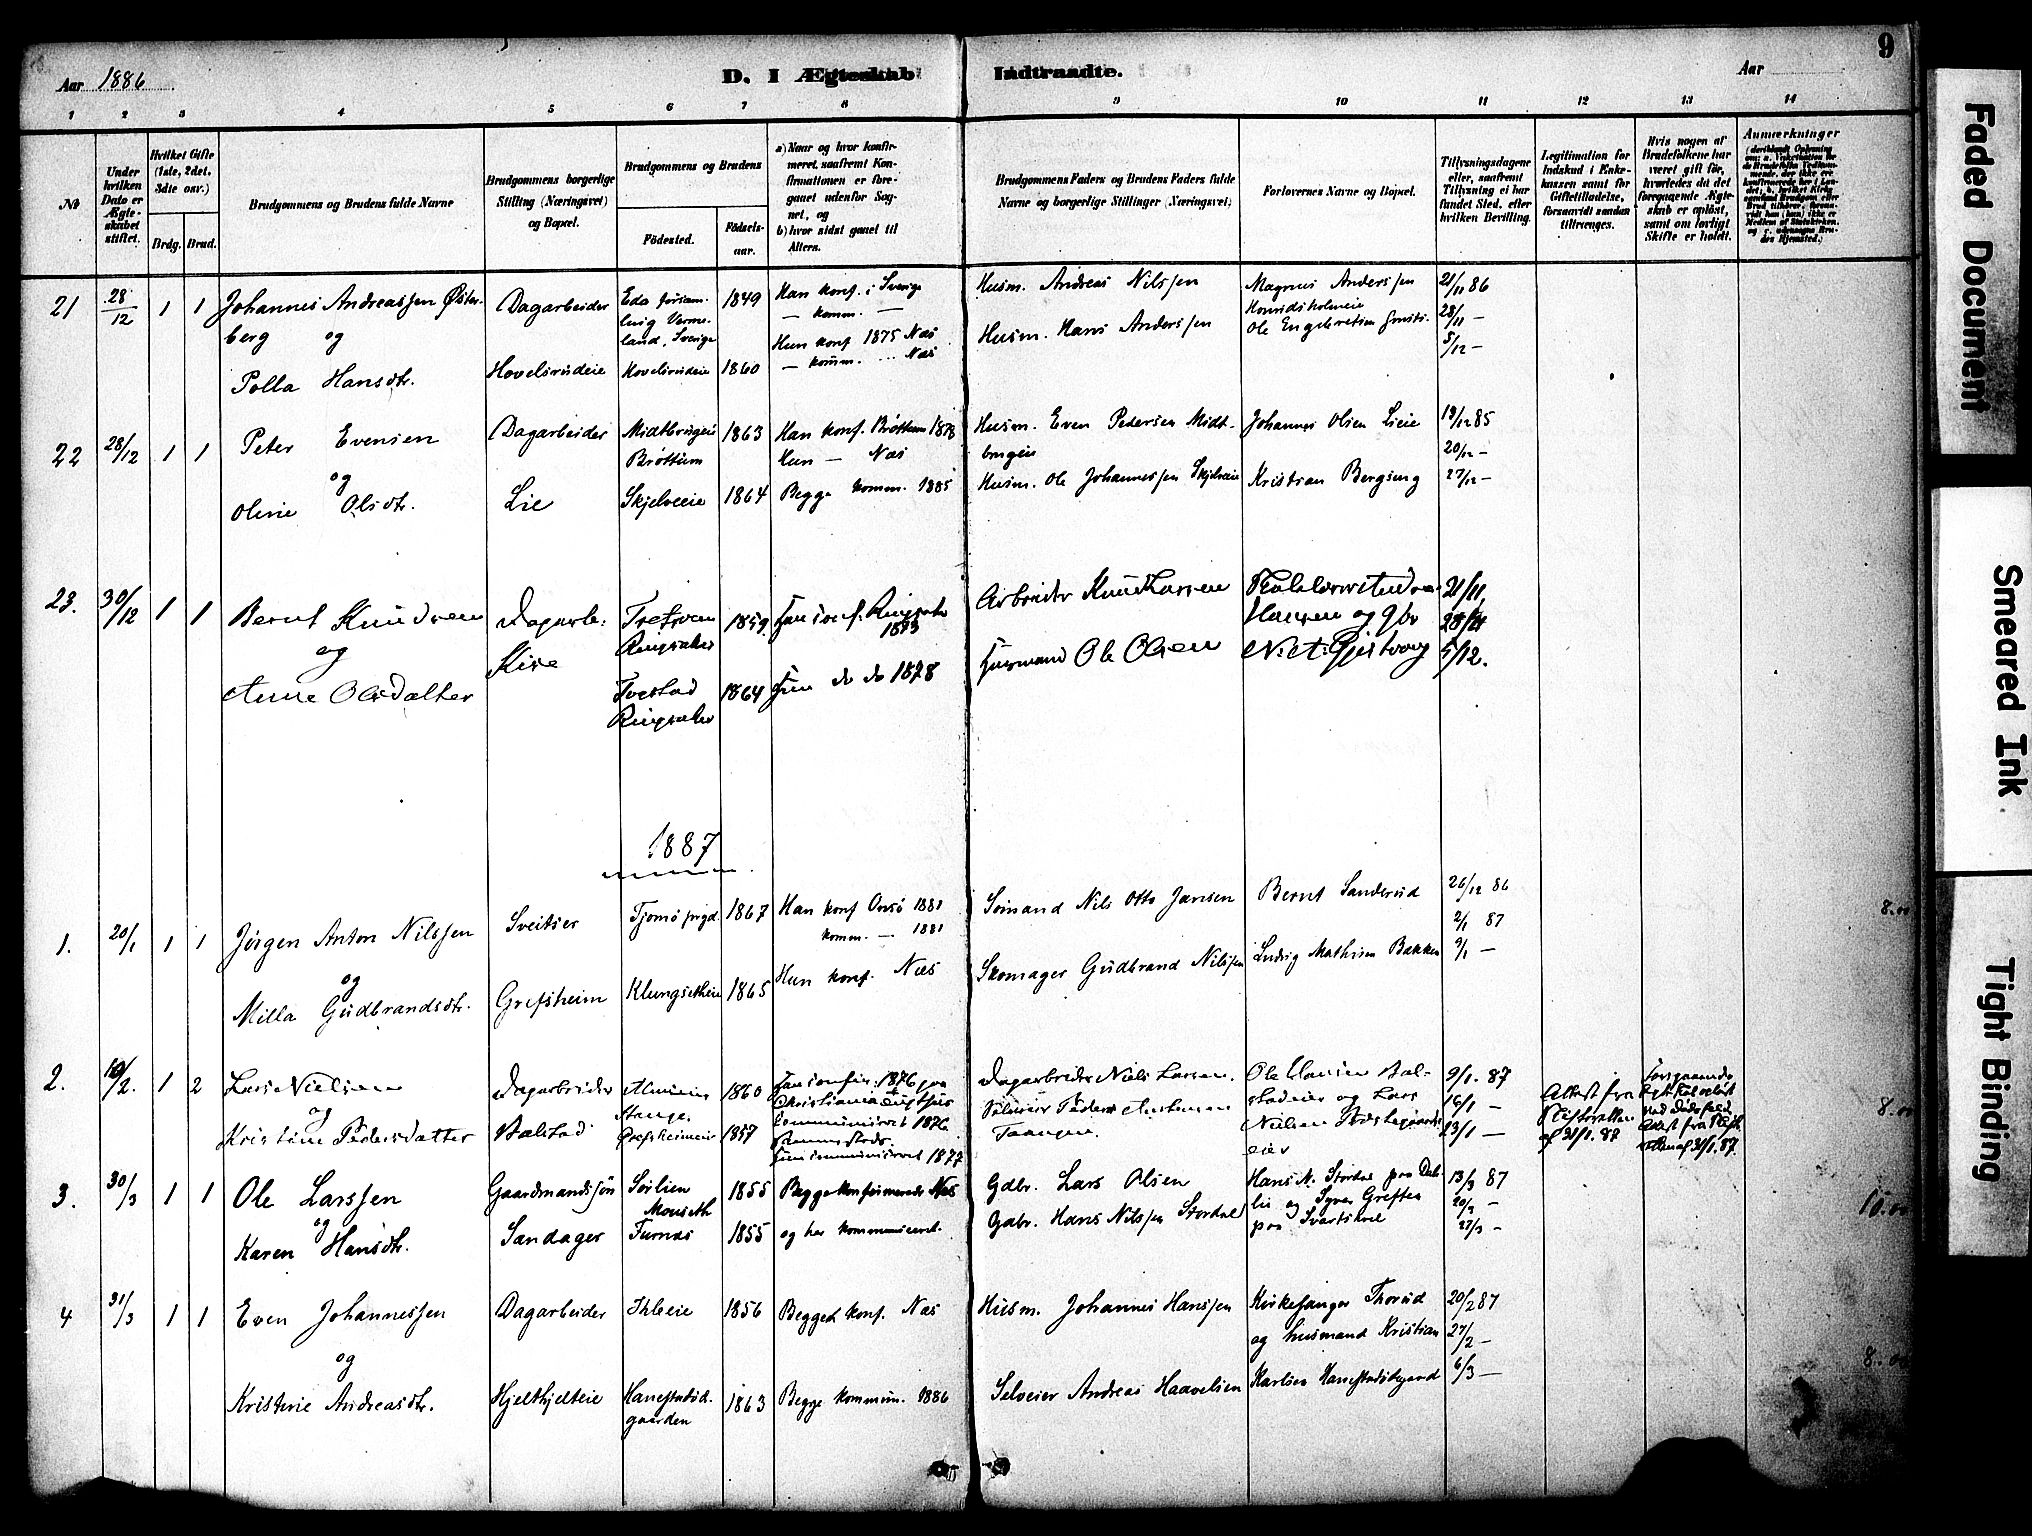 9
Aar 1886
D. I Ægteskab Indtraadte.
Aar
1 2 3 4 5 6 7 8 9 10 11 12 13 14
No
Under hvilken Dato er Ægteskabet stiftet.
Hvilket Gifte (1ste, 2det, 3die osv.)
Brdg. Brud.
Brudgommens og Brudens fulde Navne
Brudgommens borgerlige Stilling (Næringsvei) og Bopæl.
Brudgommens og Brudens
Fødested.
Fødselsaar.
a) Naar og hvor konfirmeret, saafremt Konfirmationen er foregaaet udenfor Sognet, og
b) hvor sidst gaaet til Alters.
Brudgommens Faders og Brudens Faders fulde Navne og borgerlige Stillinger (Næringsvei)
Forlovernes Navne og Bopæl.
Tillysningsdagene eller, saafremt Tillysning ei har fundet Sted, efter hvilken Bevilling.
Legitimation for Indskud i Enkekassen samt for Giftetilladelse, forsaavidt saadan tiltrænges.
Hvis nogen af Brudefolkene har været gift før, hvorledes da det foregaaende Ægteskab er opløst, samt om lovligt Skifte er holdt.
Anmærkninger
21 28/12 1 1 Johannes Andreassen Øster-
berg og
Polla Hansdtr.
Dagarbeider
Hovelsrudeie
Eda forsam-
ling Verme-
land, Sverige
Hovelsrudeie
1849
1860
Han konf. i Sverige
— komm. —
Hun konf 1875 Næs
— komm. Næs
Husm. Andreas Nilssen
Husm. Hans Anderssen
Magnus Anderssen
Ole Engebretsen
21/11 86
28/11 —
5/12 —
22 28/12 1 1 Peter Evensen
og
Oline Olsdtr.
Dagarbeider
Lie
Midtbrugeie
Brøttum
Skjelveeie
1863
1864
Han konf. Brøttum 1878
Hun — Næs
Begge komm. 1885
Husm. Even Pedersen Midt-
brugeie
Husm. Ole Johannessen Skjelveie
Johannes Olsen Lieie
Kristian Bergseng
19/12 85
20/12 —
27/12 —
23. 30/12 1 1 Bernt Knudsen
og
Anne Olsdatter
Dagarbe.
Kise
Ringsaker
Tvestad
Ringsaker
1859.
1864
Han conf. Ringsaker
1873
Hun do do 1878
Arbeider Knud Larsen
Husmand Ole Olsen
Hansen og Gbr
N. A. Gjestvang
21/11,
28/11
5/12.
1887
1. 20/1 1 1 Jørgen Anton Nilssen
og
Milla Gudbrandsdtr.
Sveitser
Grefsheim
Tjømø prgd.
Klungsetheie
1867
1865
Han konf Onsø 1881
komm. — 1881
Hun konf. Næs
Sømand Nils Otto Jansen
Skomager Gudbrand Nilssen
Bernt Sanderud
Ludvig Mathisen Bakken
26/12 86
2/1 87
9/1 —
8.00
2. 10/2. 1 2 Lars Nielsen
og
Kristine Pedersdatter
Dagarbeider
Stalstad
Stange.
Grefsheimeie
1860
1857
Han confir. 1876 paa
Christiania Tugthus
Kommuniceret 1876.
Hun communiceret 1877
Dagarbeider Niels Larsen.
Taangen.
Ole Hansen Stal-
stadeier og Lars
Nielsen
eier
9/1. 87
16/1 —
23/1 —
Attest fra
Skifteretten
af 31/1. 87
Foregaaende
Ægteskab opløst
ved Dødsfald
Attest fra Skift.
retten af 31/1. 87.
8.00
3. 30/3 1 1 Ole Larssen
og
Karen Hansdtr.
Gaardmandssøn
Sandager
Sørlien
Furnæs
1855
1855
Begge konfirmerede Næs
og har kommuniceret.
Gdbr. Lars Olsen
Gdbr. Hans Nilssen Stordal
Hans N. Stordal paa Dah-
lei og Syver Greften
paa Svartskvel
13/3 87
20/3 —
27/3 —
10.00
4 31/3 1 1 Even Johannessen
og
Kristine Andreasdtr.
Dagarbeider
Hjelthjelteie
Ihleeie
Hanestadsd-
gaarden
1856
1863
Begged konf. Næs
Begge kommun. 1886
Husm. Johannes Hanssen
Selveier Andreas Haavelsen
Kirkesanger Thorud
og husmand Kristian
Karlsen Hanestadsdgaard
20/2 87
27/2 —
6/3 —
8.00
Faded Document
Smeared Ink
Tight Binding